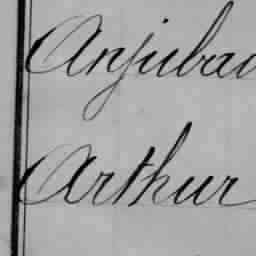 Anjubau
Arthur